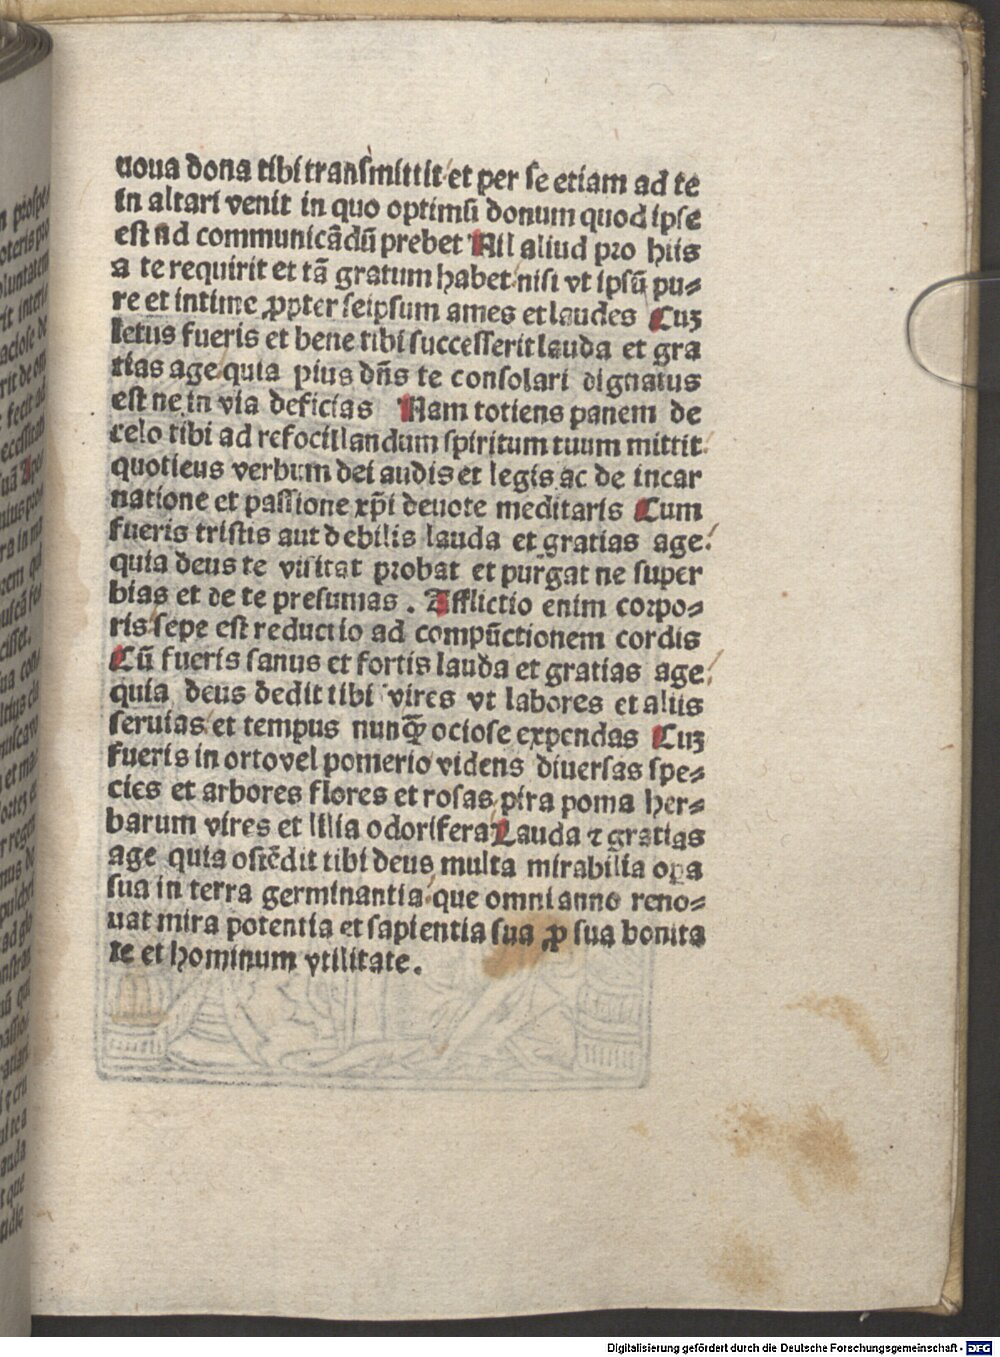 noua dona tibi transmittit et per se etiam ad te
in altari venit in quo optimū donum quod ipse
est ad communicādū prebet Nil aliud pro hiis
a te requirit et tā gratum habet nisi vt ipsū pu-
re et intime ꝓpter seipsum ames et laudes Cuʒ
letus fueris et bene tibi successerit lauda et gra
tias age quia pius dn̄s te consolari dignatus
est ne in via deficias Nam totiens panem de
celo tibi ad refocillandum spiritum tuum mittit
quotieus verbum dei audis et legis ac de incar
natione et passione xp̄i deuote meditaris Cum
fueris tristis aut debilis lauda et gratias age:
quia deus te visitat probat et purgat ne super
bias et de te presumas . Afflictio enim corpo-
ris sepe est reductio ad compūctionem cordis
Cū fueris sanus et fortis lauda et gratias age
quia deus dedit tibi vires vt labores et aliis
seruias et tempus nunqꝫ ociose expendas Cuʒ
fueris in orto vel pomerio videns diuersas spe-
cies et arbores flores et rosas pira poma her-
barum vires et lilia odorifera Lauda ⁊ gratias
age quia ostēdit tibi deus multa mirabilia opa
sua in terra germinantia que omni anno reno-
uat mira potentia et sapientia sua ꝓ sua bonita
te et hominum vtilitate.
Digitalisierung gefördert durch die Deutsche Forschungsgemeinschaft - DFG